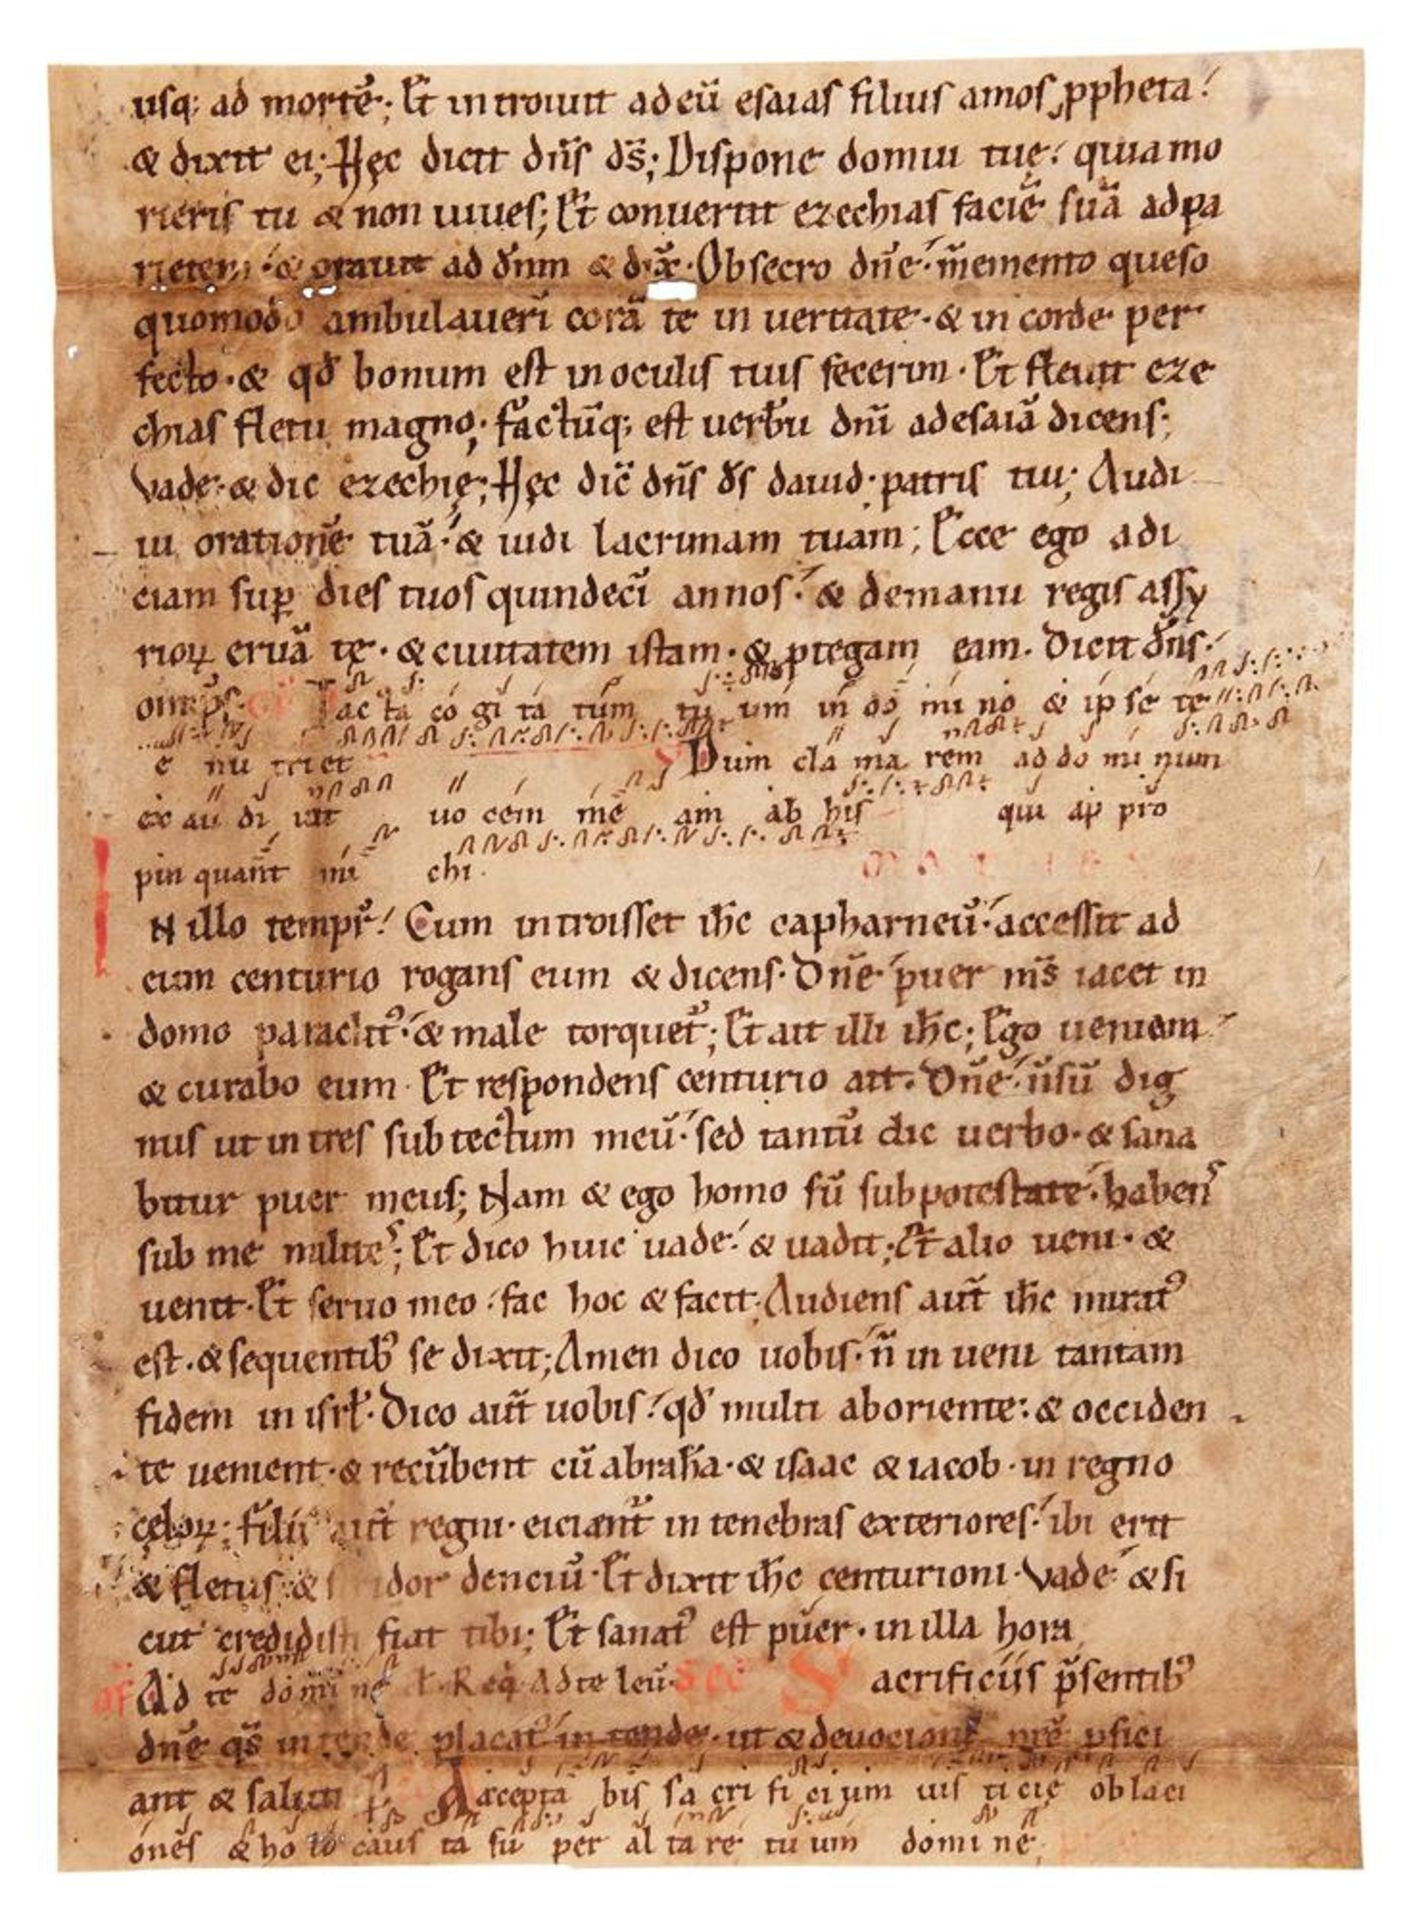 usq; ad mortē; Et introiuit ad eū esaias filius amos ppheta.
& dixit ei; Hęc dicit dn̄s ds̄; Dispone domui tuę. quia mo
rieris tu & non uiues; Et conuertit ezechias faciē suā ad pa
rietem. & orauit ad dn̄m & dix̄. Obsecro dn̄e. m̄emento queso
quomodo ambulauerī corā te in ueritate. & in corde per
fecto. & qd̄ bonum est in oculis tuis fecerim. Et fleuit eze
chias fletu magno; factūq; est uerbū dn̄i ad esaiā dicens;
Vade. & dic ezechię; Hęc dic̄ dn̄s ds̄ dauid. patris tui; Audi
ui orationē tuā. & uidi lacrimam tuam; Ecce ego adi
ciam sup dies tuos quindecī annos. & de manu regis assy
rioꝝ eruā te. & ciuitatem istam. & ptegam eam. Dicit dn̄s.
omp̄s. Iac ta co gi ta tum tu um in do mi no & ip se te
e nu triet Dum cla ma rem ad do mi num
ex au di uit uo cem me am ab his qui ap pro
pin quant̄ mi chi.
N illo tempr̄. Cum introisset ih̄c capharneū. accessit ad
eum centurio rogans eum & dicens. Dn̄e. puer ms̄ iacet in
domo paraclit᾿. & male torquet᾿; Et ait illi ih̄c; Ego ueniam
& curabo eum. Et respondens centurio ait. Dn̄e. n̄ sū dig
nus ut intres sub tectum meū. sed tantū dic uerbo. & sana
bitur puer meus; Nam & ego homo sū sub potestate. habens
sub me milites; Et dico huic uade. & uadit; Et alio ueni. &
uenit. Et seruo meo. fac hoc & facit; Audiens aut̄ ih̄c mirat᾿
est. & sequentib᾿ se dixit; Amen dico uobis. n̄ inueni tantam
fidem in isrl̄. Dico aut̄ uobis. qd̄ multi ab oriente. & occiden
te uenient. & recūbent cū abrah̄a. & isaac & iacob. in regno
cęloꝝ; filii aut̄ regni. eicient᾿ in tenebras exteriores. ibi erit
& fletus. & dor denciū. Et dixit ih̄c centurioni. Vade. & si
cut credidisti fiat tibi; Et sanat᾿ est puer. in illa hora
of Ad te domine Req̄ Ad te leu᾿. Sec Sacrificiis p̄sentib᾿
dn̄e qs̄ intende placat᾿ intende. ut & deuocioni nrē pfici
ant & saluti Accepta bis sa cri fi ci um ius ti cię oblaci
ones & ho lo caus ta su per al ta re tu um domi ne.